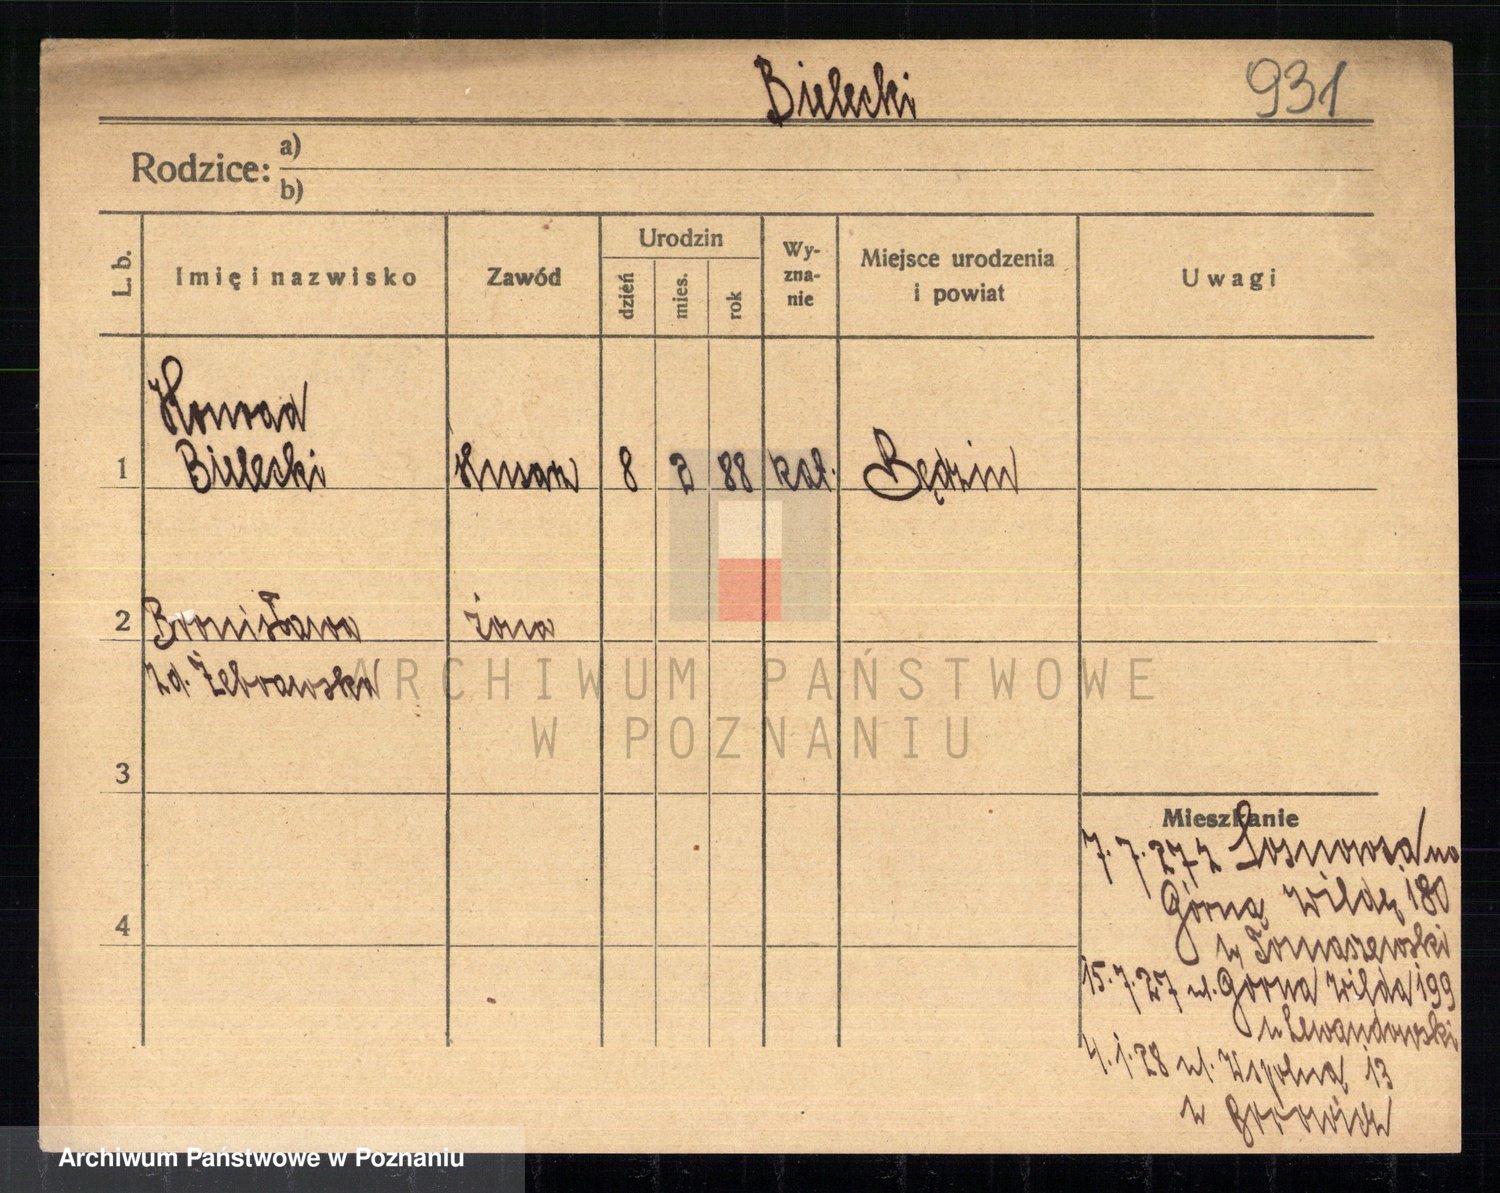 Bielecki
931
Rodzice: a)
b)
L. b.
Imię i nazwisko
Zawód
Urodzin
dzień
mies.
rok
Wy-
zna-
nie
Miejsce urodzenia
i powiat
Uwagi
Konrad
1 Bielecki 8 2 88 kat. Będzin
2 Bronisława żona
zd. Żebrowska
3
4
Mieszkanie
7.7.27 z Sosnowca na
Górną Wildę 180
u Tomaszewski
15.7.27 ul. Górna Wilda 199
u Lewandowski
4.1.28 ul. Wspólna 13
u
ARCHIWUM PAŃSTWOWE
W POZNANIU
Archiwum Państwowe w Poznaniu